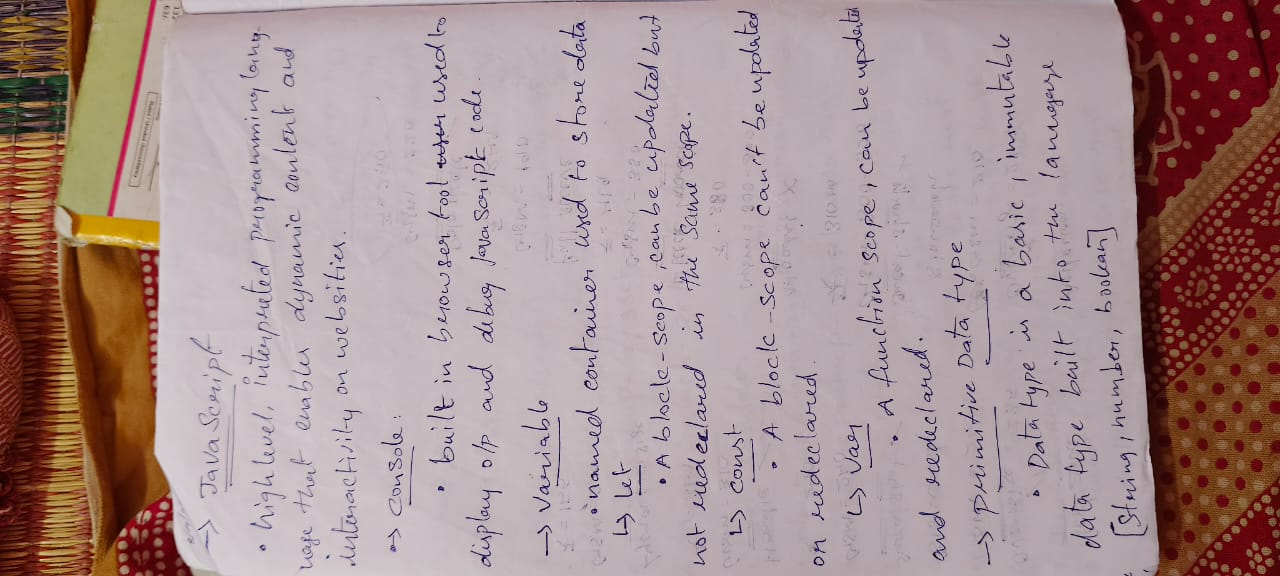 → JavaScript
• high level, interpreted programming lang-
uage that enables dynamic content and
interactivity on websites.
→ console:
• built in browser tool used to
display o/p and debug JavaScript code.
→ Variable
• named container used to store data
↳ let
• A block-scope, can be updated but
not redeclared in the same scope.
↳ const
• A block-scope can't be updated
or redeclared.
↳ Var
• A function scope, can be updated
and redeclared.
→ primitive Data type
• Data type is a basic, immutable
data type built into the language
[String, number, boolean]